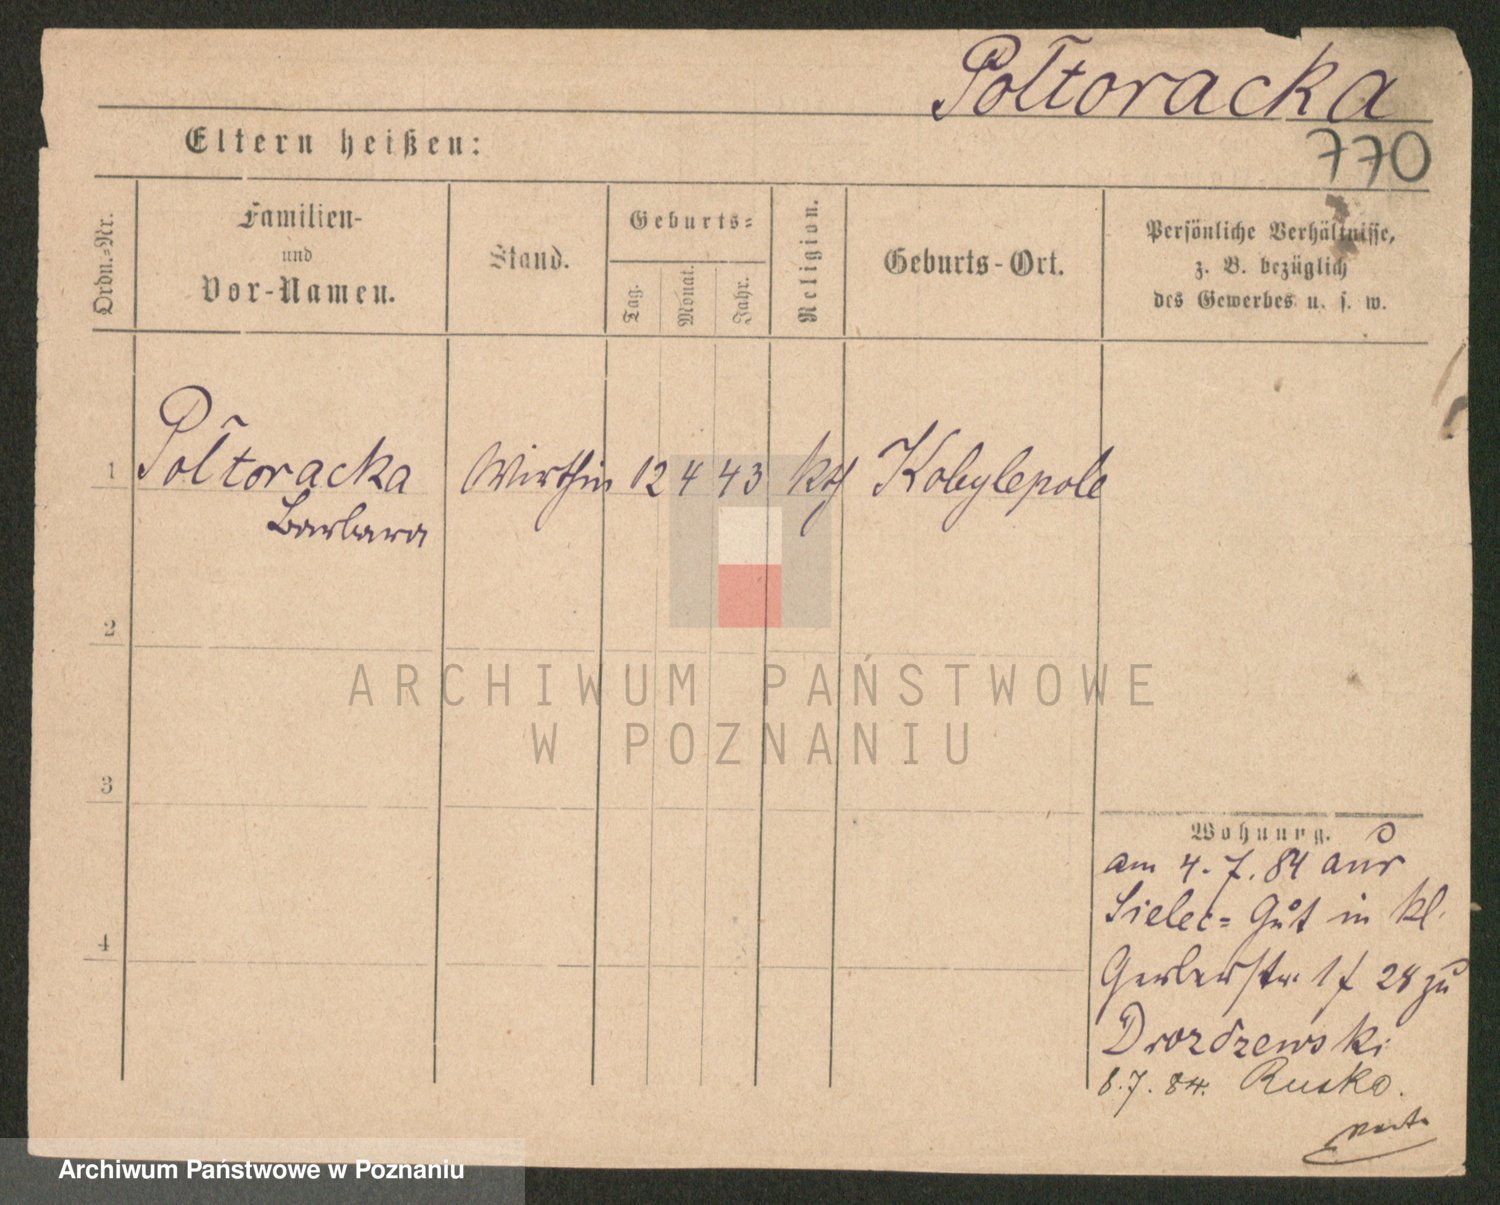 Połtoracka
770
Eltern heißen:
Ordn.=Nr.
Familien-
und
Vor-Namen.
Stand.
Geburts=
Tag.
Monat.
Jahr.
Religion.
Geburts-Ort.
Persönliche Verhältnisse,
z. B. bezüglich
des Gewerbes u. s. w.
1 Połtoracka Wirthin 12 4 43 kth Kobylepole
Barbara
2
3
4
Wohnung.
am 4. 7. 84 aus
Sielec= Gut in kl.
Gerberstr. 17 28 zu
Drozdzewski
8. 7. 84. Rusko.
ARCHIWUM PAŃSTWOWE
W POZNANIU
Archiwum Państwowe w Poznaniu